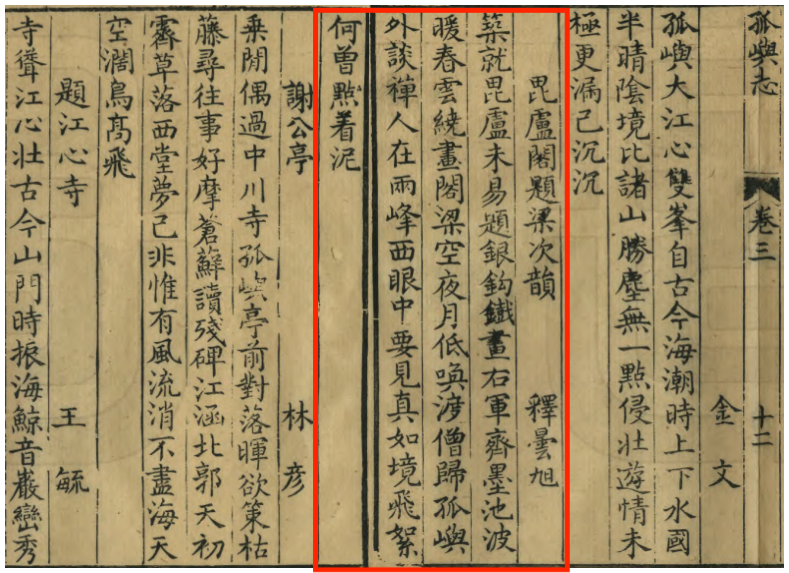 孤嶼志 卷三 十二
金文
孤嶼大江心雙峯自古今海潮時上下水國
半晴陰境比諸山勝塵無一點侵壯遊情未
極更漏已沉沉
毘盧閣題梁次韻 釋曇旭
築就毘盧未易題銀鈎鐵畫右軍齊墨池波
暖春雲繞畫閣梁空夜月低喚渡僧歸孤嶼
外談禪人在兩峰西眼中要見真如境飛絮
何曾㸃着泥
謝公亭 林彥
乘閒偶過中川寺孤嶼亭前對落暉欲策枯
藤尋往事好摩蒼蘚讀殘碑江涵北郭天初
霽草落西堂夢已非惟有風流消不盡海天
空濶鳥髙飛
題江心寺 王毓
寺聳江心壯古今山門時振海鯨音巖巒秀